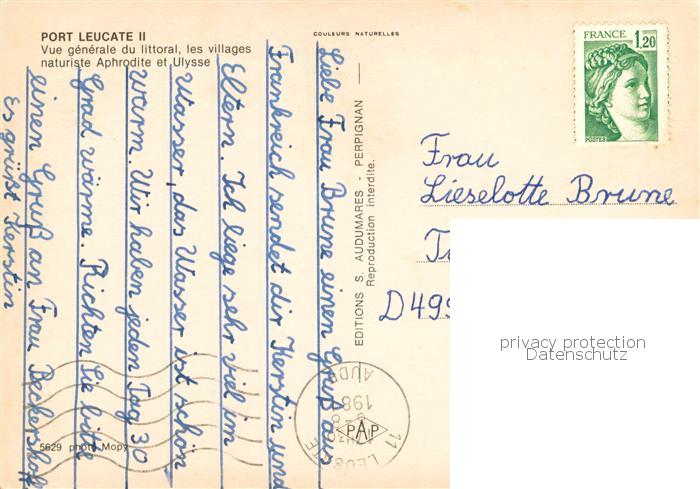 PORT LEUCATE II
Vue générale du littoral, les villages
naturiste Aphrodite et Ulysse
COULEURS NATURELLES
FRANCE
1,20
POSTES
Liebe Frau Brune einen Gruß aus
Frankreich sendet dir Kerstin und
Eltern. Ich liege sehr viel im
Wasser, das Wasser ist schön
warm. Wir haben jeden Tag 30
Grad wärme. Richten Sie bitte
einen Gruß an Frau Beckershoff
Es grüßt Kerstin
EDITIONS S. AUDUMARES - PERPIGNAN
Reproduction interdite.
Frau
Lieselotte Brune
D499
privacy protection
Datenschutz
11 LEUCATE
PAP
AUDE
5629 photo Mopy